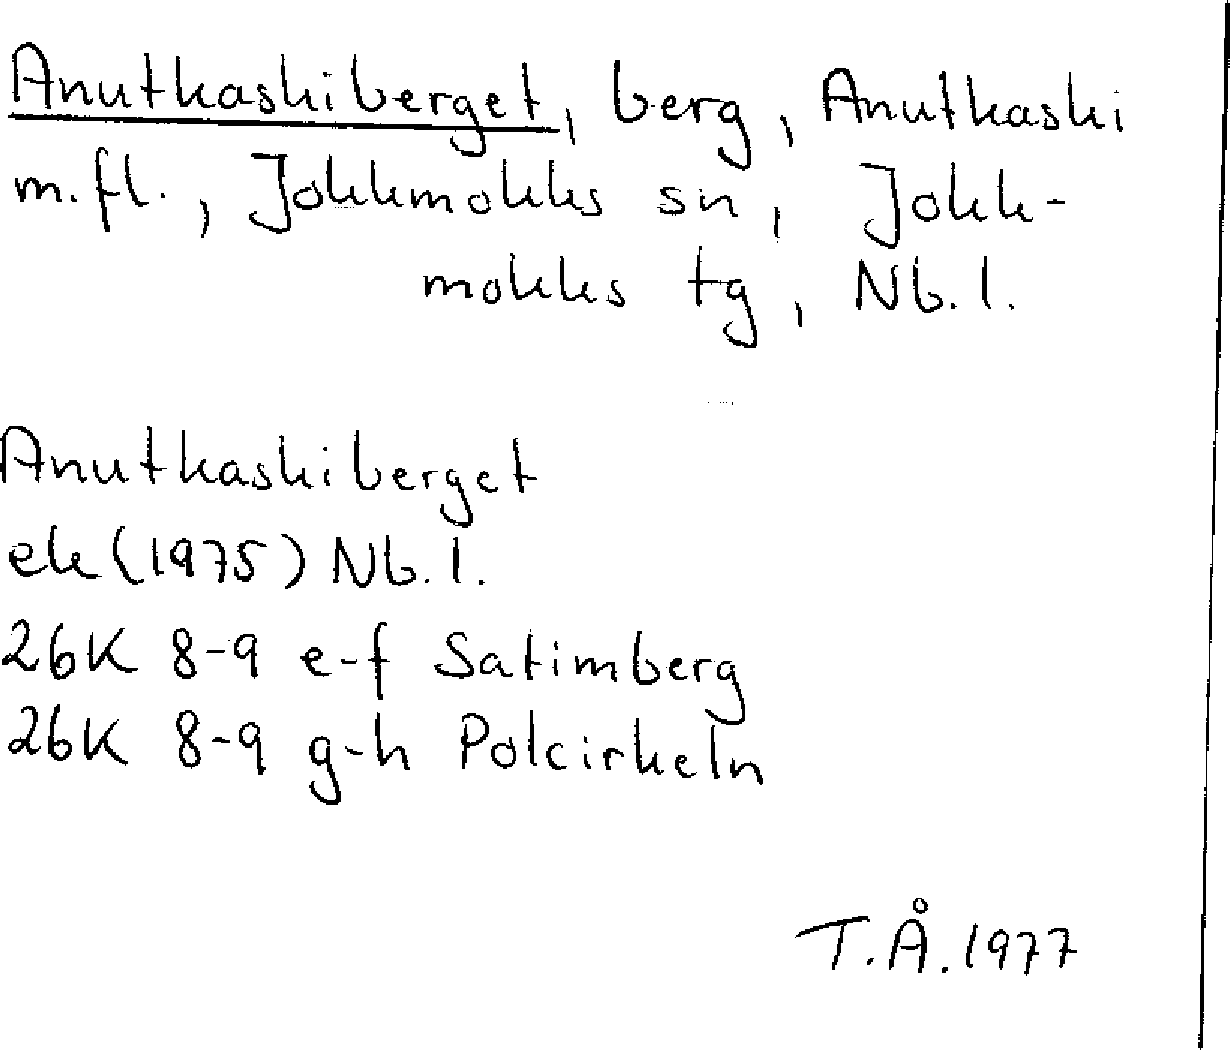 Anutkaskiberget, berg, Anutkaski
m.fl., Jokkmokks sn, Jokk-
mokks tg, Nb.l.
Anutkaskiberget
ek (1975) Nb.l.
26K 8-9 e-f Satimberg
26K 8-9 g-h Polcirkeln
T.Å. 1977